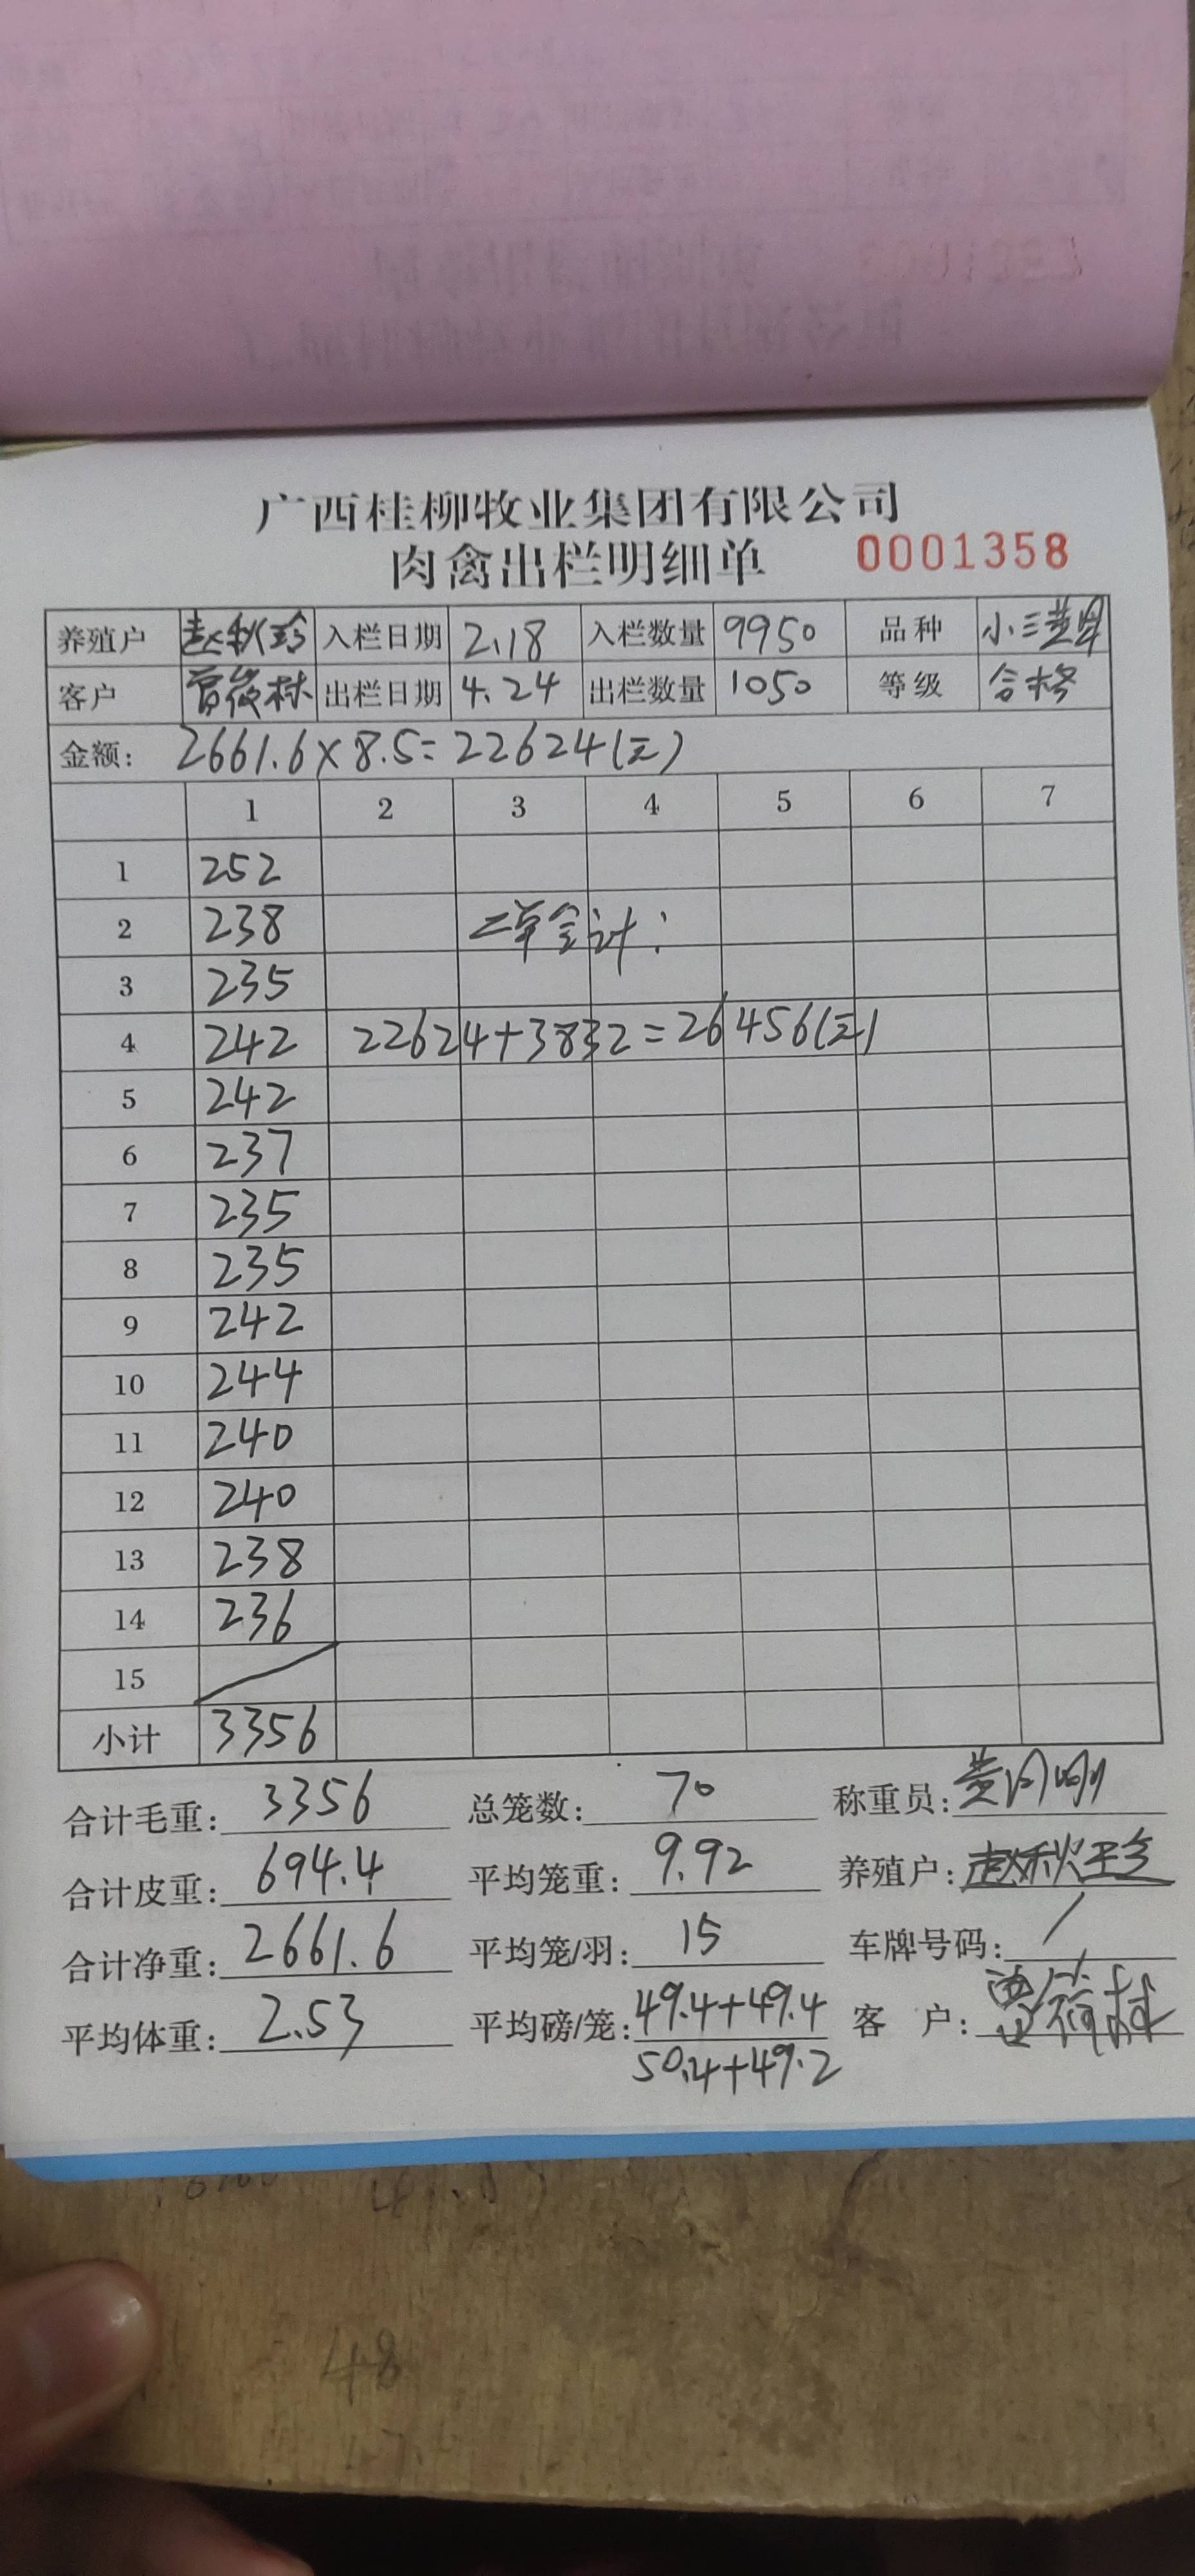 广西桂柳牧业集团有限公司
肉禽出栏明细单 0001358
养殖户 赵秋珍 入栏日期 2.18 入栏数量 9950 品种 小三黄
客户 林 出栏日期 4.24 出栏数量 1050 等级 合格
金额: 2661.6×8.5=22624(元)
1 2 3 4 5 6 7
1 252
2 238 二单合计:
3 235
4 242 22624+3832=26456(元)
5 242
6 237
7 235
8 235
9 242
10 244
11 240
12 240
13 238
14 236
15
小计 3356
合计毛重: 3356 总笼数: 70 称重员: 黄刚
合计皮重: 694.4 平均笼重: 9.92 养殖户: 赵秋珍
合计净重: 2661.6 平均笼/羽: 15 车牌号码: /
平均体重: 2.53 平均磅/笼: 49.4+49.4 客 户: 林
50.4+49.2
48